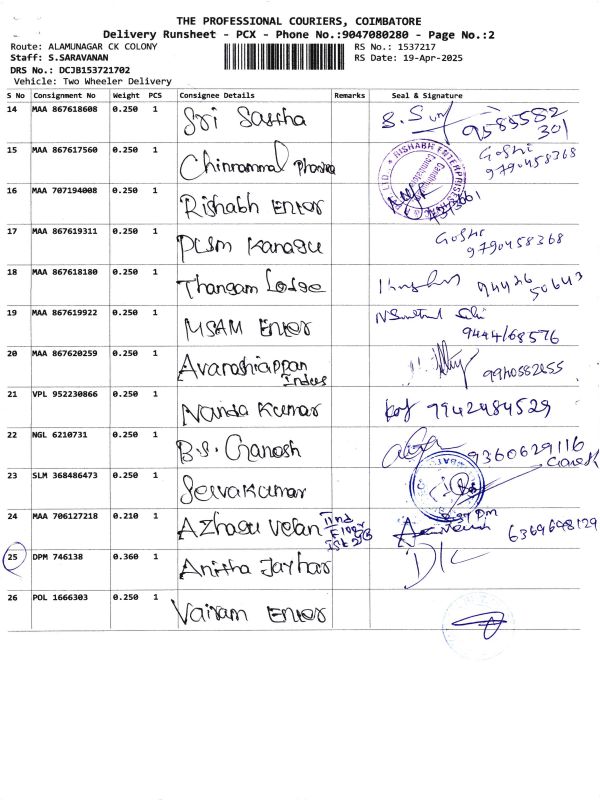 THE PROFESSIONAL COURIERS, COIMBATORE
Delivery Runsheet - PCX - Phone No.:9047080280 - Page No.:2
Route: ALAMUNAGAR CK COLONY
RS No.: 1537217
Staff: S.SARAVANAN
RS Date: 19-Apr-2025
DRS No.: DCJB153721702
Vehicle: Two Wheeler Delivery
S No Consignment No Weight PCS Consignee Details Remarks Seal & Signature
14 MAA 867618608 0.250 1 Sri Sastha
9585582
301
15 MAA 867617560 0.250 1 Chinnammal Pharma
9790458368
RISHABH ENTERPRISES
16 MAA 707194008 0.250 1 Rishabh Enter
17 MAA 867619311 0.250 1 PLSM Kanagu
9790458368
18 MAA 867618180 0.250 1 Thangam Lodge
94426
50643
19 MAA 867619922 0.250 1 MSAM Enter
9444168576
20 MAA 867620259 0.250 1 Avarashiappan
Indus
9940582655
21 VPL 952230866 0.250 1 Nanda Kumar
9942484529
22 NGL 6210731 0.250 1 B.S. Ganesh
9360629116
Ganesh
23 SLM 368486473 0.250 1 Selvakumar
24 MAA 706127218 0.210 1 Azhagu Velan
IInd
Floor
6369698129
25 DPM 746138 0.360 1 Anitha Jayhar
D/C
26 POL 1666303 0.250 1 Vairam Enter